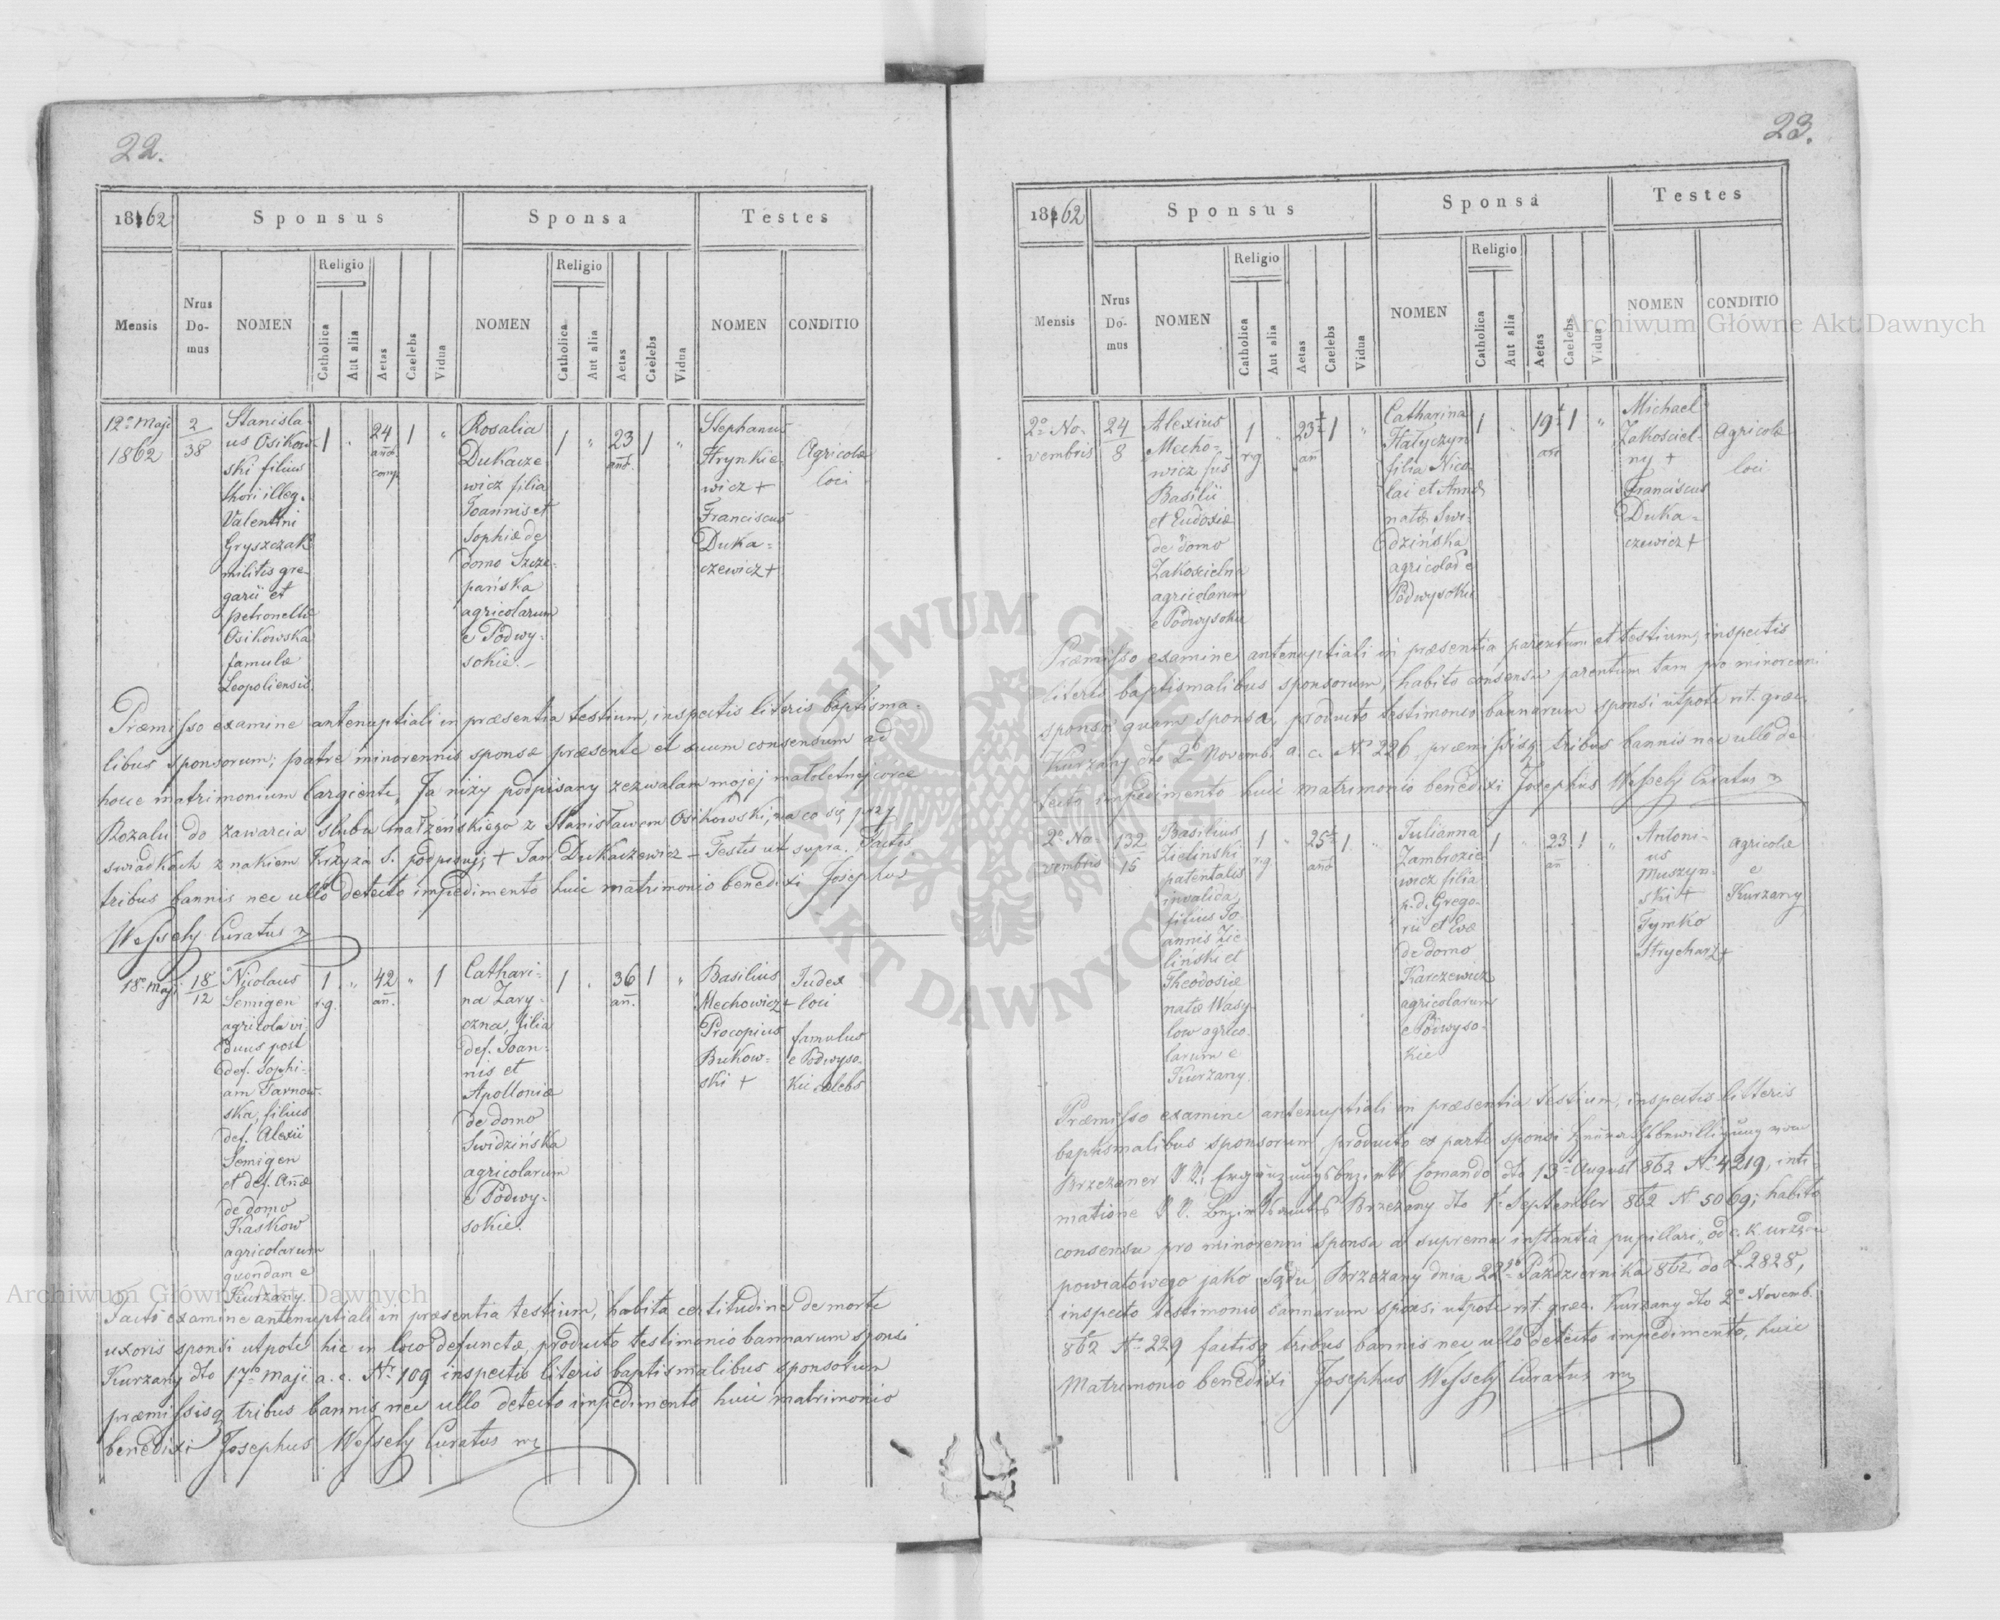 22.
1862
Sponsus
Sponsa
Testes
Mensis
Nrus Domus
NOMEN
Religio
Catholica
Aut alia
Aetas
Caelebs
Vidua
NOMEN
Religio
Catholica
Aut alia
Aetas
Caelebs
Vidua
NOMEN
CONDITIO
12a Maji
1862
2
38
Stanisla-
us Osikow-
ski filius
thori illeg.
Valentini
Gryszczak
militis gre-
garii et
Petronellæ
Osikowska
famulæ
Leopoliensis.
1
"
24
añor.
comp.
1
"
Rosalia
Dukacze
wicz filia
Joannis et
Sophiæ de
domo Szcze-
pańska
agricolarum
e Podwy-
sokie.-
1
"
23
anor.
1
"
Stephanus
Hrynkie-
wicz +
Franciscus
Duka-
czewicz +
Agricolæ
loci
Præmisso examine antenuptiali in præsentia testium, inspectis literis baptisma-
libus sponsorum; patre minorennis sponsæ præsente et suum consensum ad
hocce matrimonium largiente, Ja niży podpisany zezwalam mojej małoletniej córce
Rozalii do zawarcia ślubu małżeńskiego z Stanisławem Osikowski, na co się przy
swiadkach znakiem Krzyża S. podpisuję + Jan Dukaczewicz - Testes ut supra. Factis
tribus bannis nec ullo detecto impedimento huic matrimonio benedixi Josephus
Wessely Curatus
18a Maji
18
12
Nicolaus
Semigen
agricola vi-
duus post
def. Sophi-
am Tarnow-
ska, filius
def. Alexii
Semigen
et def. Añæ
de domo
Kaśkow
agricolarum
quondam e
Kurzany.
1
r.g.
"
42
añ.
"
1
Cathari-
na Zary-
czna, filia
def. Joan-
nis et
Apolloniæ
de domo
Swidzińska
agricolarum
e Podwy-
sokie.
1
"
36
añ.
1
"
Basilius
Mechowicz +
Procopius
Bukow-
ski +
Judex
loci
famulus
e Podwyso-
kie cælebs
Facto examine antenuptiali in præsentia testium, habita certitudine de morte
uxoris sponsi utpote hic in loco defunctæ, producto testimonio bannorum sponsi
Kurzany dto 17a Maji a. c. Nr 109 inspectis literis baptismalibus sponsorum
præmissisq tribus bannis nec ullo detecto impedimento huic matrimonio
benedixi Josephus Wessely Curatus
23.
1862
Sponsus
Sponsa
Testes
Mensis
Nrus Domus
NOMEN
Religio
Catholica
Aut alia
Aetas
Caelebs
Vidua
NOMEN
Religio
Catholica
Aut alia
Aetas
Caelebs
Vidua
NOMEN
CONDITIO
2a No-
vembris
24
8
Alexius
Mecho-
wicz fus
Basilii
et Eudoxiæ
de domo
Zakoscielna
agricolarum
e Podwysokie
1
r.g.
"
23½
añ
1
"
Catharina
Hałyczyn
filia Nico-
lai et Annæ
natæ Swi-
dzińska
agricolar e
Podwysokie
1
"
19½
añ
1
"
Michael
Zakosciel-
ny +
Franciscus
Duka-
czewicz +
Agricolæ
loci
Præmisso examine antenuptiali in præsentia parentum et testium, inspectis
literis baptismalibus sponsorum, habito consensu parentum tam pro minorenni
sponso quam sponsa, producto testimonio bannorum sponsi utpote rit. græc.
Kurzany dto 2a Novemb. a. c. Nr 226 præmissisq tribus bannis nec ullo de-
tecto impedimento huic matrimonio benedixi Josephus Wessely Curatus
2a No-
vembris
132
15
Basilius
Zielinski
patentalis
invalida
filius Jo-
annis Zie-
linski et
Theodosiæ
natæ Wasy-
low agrico-
larum e
Kurzany.
1
r.g.
"
25½
anor
1
"
Julianna
Zambroxie
wicz filia
p.d. Grego-
rii et Evæ
de domo
Karczewicz
agricolarum
e Podwyso-
kie
1
"
23
añ
1
"
Antoni-
us
Muszyn-
ski +
Tymko
Strycharz +
agricolæ
e
Kurzany
Præmisso examine antenuptiali in præsentia testium, inspectis litteris
baptismalibus sponsorum producto ex parte sponsi bewilligung vom
Brzezaner Ergänzungsbezirks Comando dto 13. August 862 Nr 4219, inti-
matione Bezirksamtes Brzezany dto 1. September 862 Nr 5069; habito
consensu pro minorenni sponsa a suprema instantia pupillari, od c. k. urzędu
powiatowego jako sądu Brzezany dnia 22go Października 862 do L. 2828,
inspecto testimonio bannorum sponsi utpote rit. græc. Kurzany dto 2a Novemb.
862 Nr 229 factisq tribus bannis nec ullo detecto impedimento, huic
Matrimonio benedixi Josephus Wessely Curatus
Archiwum Główne Akt Dawnych
Archiwum Główne Akt Dawnych
ARCHIWUM GŁÓWNE AKT DAWNYCH